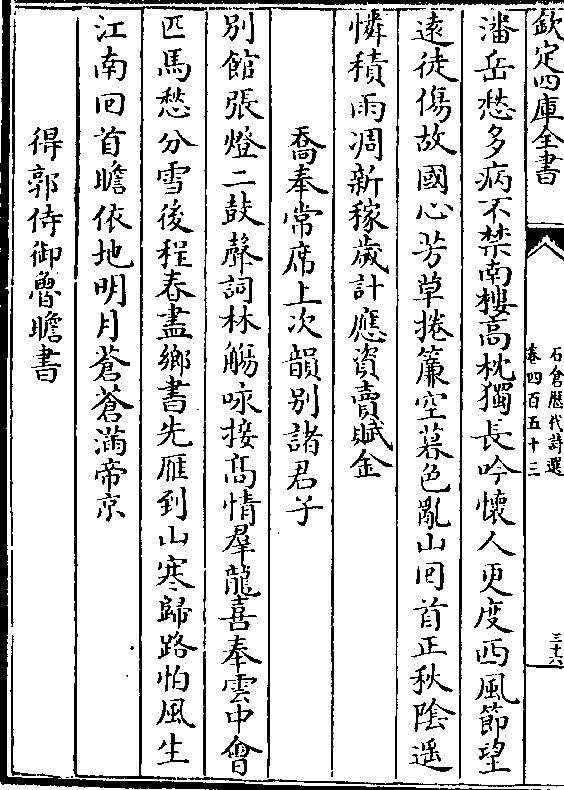 欽定四庫全書
石倉歴代詩選
卷四百五十三
三十六
潘岳愁多病不禁南樓高枕獨長吟懷人更度西風節望
遠徒傷故國心芳草捲簾空暮色亂山回首正秋陰遥
憐積雨凋新稼歲計應資賣賦金
喬奉常席上次韻別諸君子
別館張燈二鼓聲詞林觴咏接髙情羣龍喜奉雲中會
匹馬愁分雪後程春盡鄉書先雁到山寒歸路怕風生
江南回首瞻依地明月蒼蒼滿帝京
得郭侍御魯瞻書